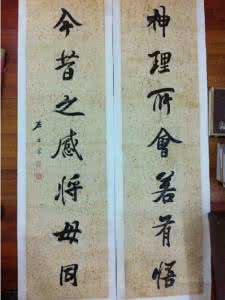 神理所會若有悟
今昔之感將毋同